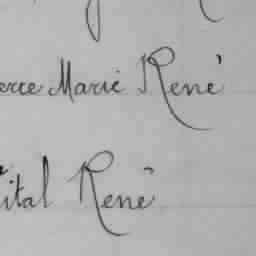 Marie René
ital René